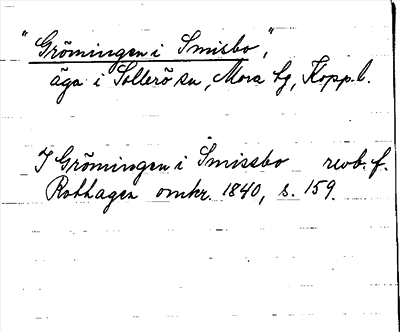 "Grömingen i Smisbo",
äga i Sollerö sn, Mora tg, Kopp. l.
I Grömingen i Smissbo revb. f.
Rothagen omkr. 1840, s. 159.